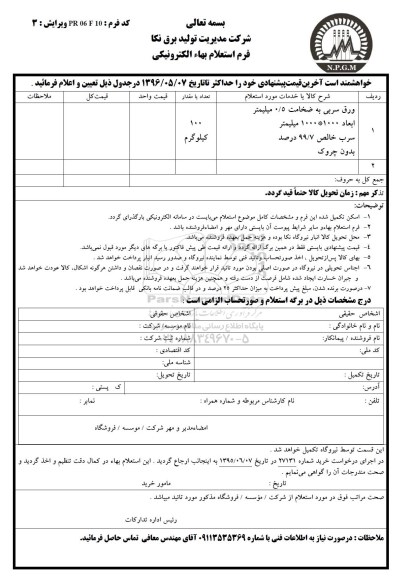 بسمه تعالی
کد فرم : PR 06 F 10 ویرایش : ۳
شرکت مدیریت تولید برق نکا
فرم استعلام بهاء الکترونیکی
N.P.G.M
خواهشمند است آخرین‌قیمت‌پیشنهادی خود را حداکثر تاتاریخ ۱۳۹۶/۰۵/۰۷ درجدول ذیل تعیین و اعلام فرمائید .
ردیف شرح کالا یا خدمات مورد استعلام تعداد یا مقدار قیمت واحد قیمت‌کل ملاحظات
۱ ورق سربی به ضخامت ۰/۵ میلیمتر
ابعاد ۱۰۰۰*۱۰۰۰ میلیمتر ۱۰۰
سرب خالص ۹۹/۷ درصد کیلوگرم
بدون چروک
۲
جمع کل به حروف:
تذکر مهم : زمان تحویل کالا حتماً قید گردد.
توضیحات:
۱- اسکن تکمیل شده این فرم و مشخصات کامل موضوع استعلام می‌بایست در سامانه الکترونیکی بارگذرای گردد.
۲- فرم استعلام بهاءو سایر شرایط پیوست آن بایستی دارای مهر و امضاءفروشنده باشد .
۳- محل تحویل کالا انبار نیروگاه نکا بوده و هزینه حمل بعهده فروشنده می‌باشد.
۴- قیمت پیشنهادی بایستی فقط در همین برگ ارائه گردد و ارائه قیمت طی پیش فاکتور یا برگه های دیگر مورد قبول نمی‌باشد.
۵- بهای کالا پس‌ازتحویل ، اخذ صورتحساب‌وتائید فنی توسط نماینده نیروگاه و صدور رسید انبار پرداخت خواهد شد .
۶- اجناس تحویلی در نیروگاه در صورت اصلی بودن مورد تائید قرار خواهند گرفت و در صورت نقصان و داشتن هرگونه اشکال، کالا عودت خواهد شد
و جبران خسارت ایجاد شده شامل فرصت از دست رفته و همچنین هزینه حمل بعهده فروشنده می‌باشد .
۷- درصورت برنده شدن، مبلغ پیش پرداخت به میزان حداکثر ۲۵ درصد و در قالب ضمانت نامه بانکی قابل پرداخت خواهد بود .
درج مشخصات ذیل در برگه استعلام و صورتحساب الزامی است :
اشخاص حقیقی اشخاص حقوقی
نام و نام خانوادگی : نام موسسه/ شرکت :
نام فروشنده / پیمانکار: شماره ثبت شرکت :
کد ملی: کد اقتصادی :
شناسه ملی:
تاریخ تکمیل : تاریخ تحویل:
آدرس: ک پستی :
تلفن : نام کارشناس مربوطه و شماره همراه : نمابر :
امضاءمدیر و مهر شرکت / موسسه / فروشگاه
این قسمت توسط نیروگاه تکمیل خواهد شد .
در اجرای درخواست خرید شماره ۲۷۱۳۱ در تاریخ ۱۳۹۵/۰۶/۰۷ به اینجانب ارجاع گردید . این استعلام بهاء در کمال دقت تنظیم و اخذ گردید و
صحت مندرجات آن را گواهی می‌نمایم .
تاریخ : مامور خرید
صحت مراتب فوق در مورد استعلام از شرکت / مؤسسه / فروشگاه مذکور مورد تائید میباشد .
رئیس اداره تدارکات
ملاحظات : درصورت نیاز به اطلاعات فنی با شماره ۰۹۱۱۳۵۳۵۳۶۹ آقای مهندس معافی تماس حاصل فرمائید.